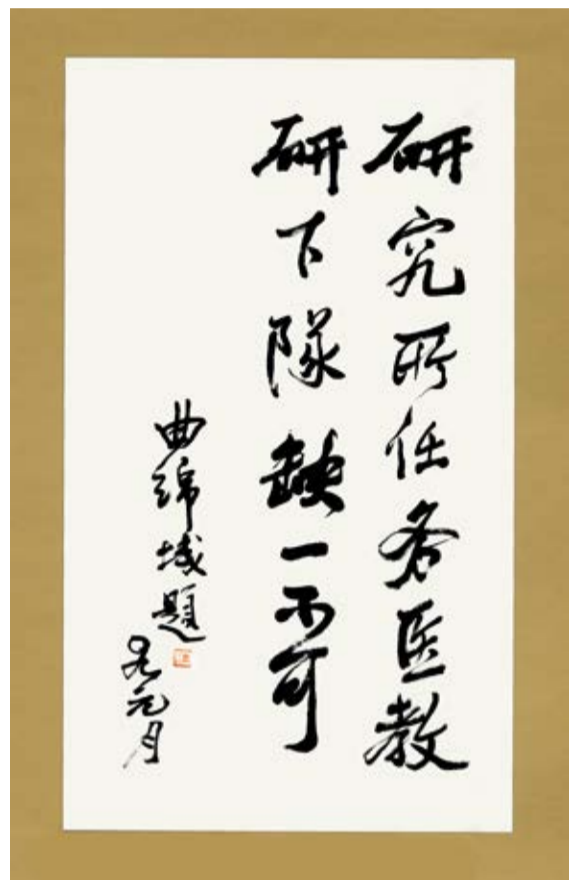 研究所任务医教
研下隊缺一不可
曲绵域題
元月